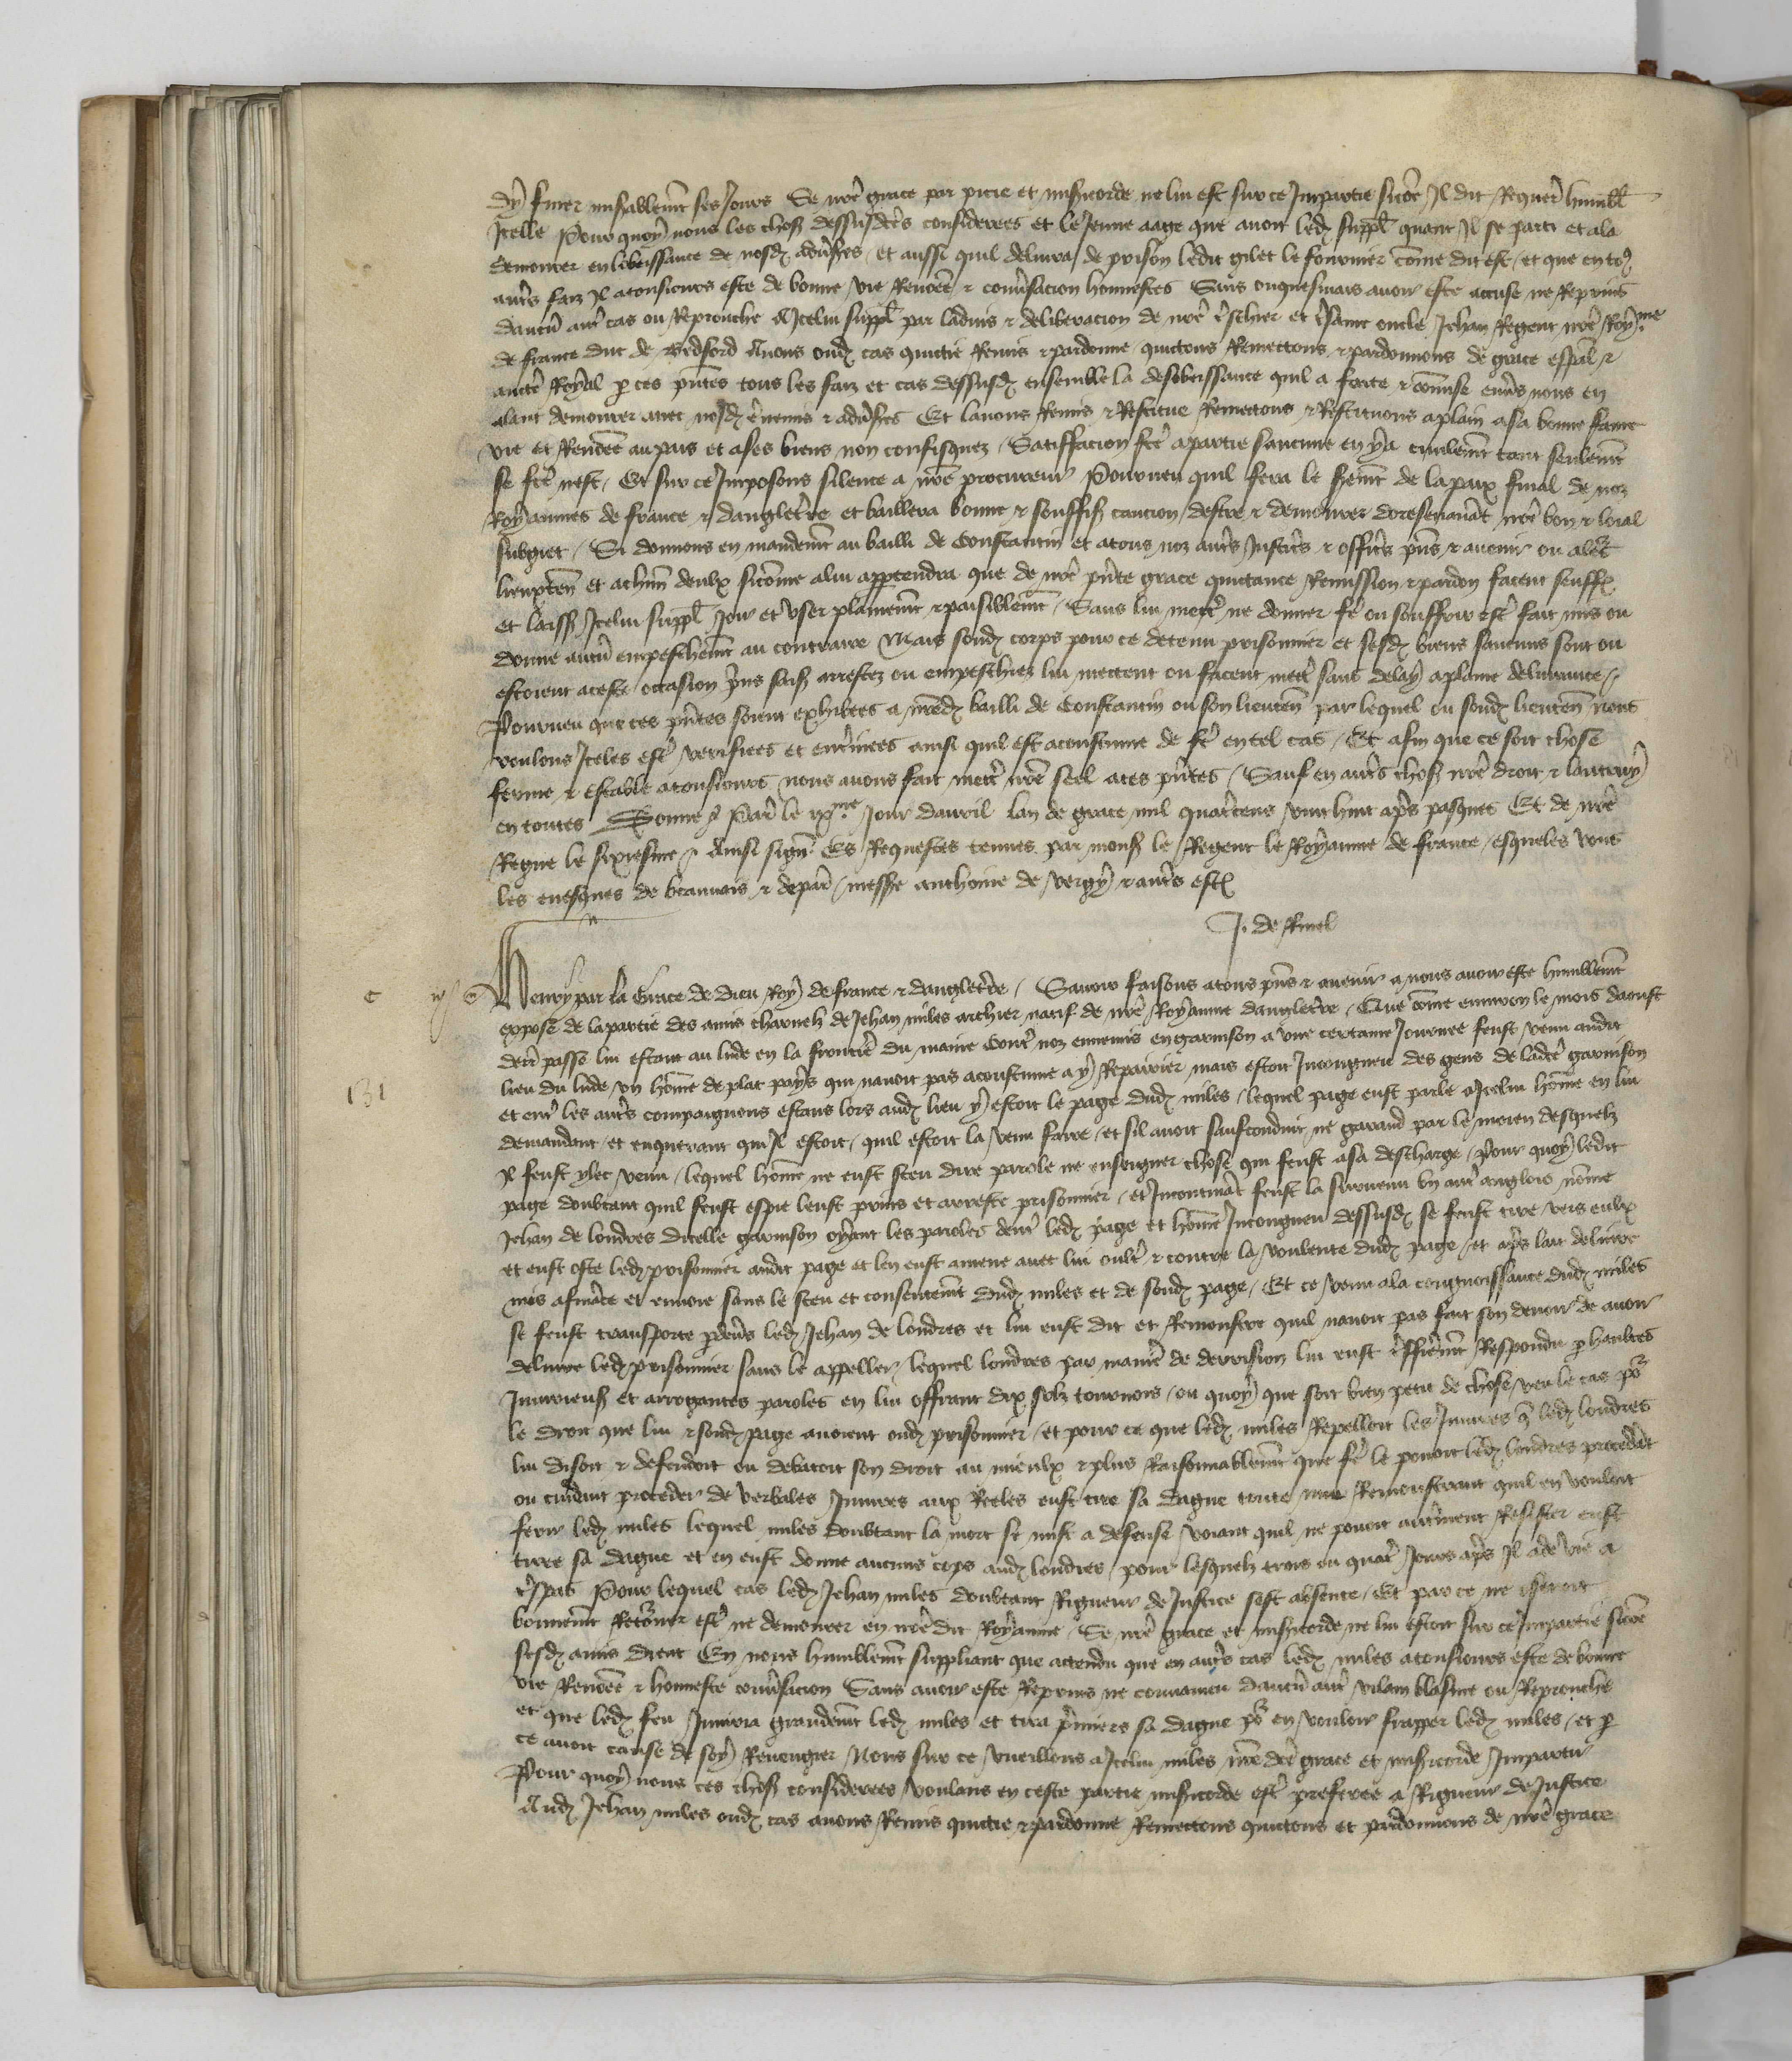 dy finer miserablemt ses jours Se nre grace par pitie et misericorde ne lui est sur ce Impartie sicōe Il dit Requert humblt
Icelle Pour quoy nous les choses dessusdes considerees et le Jeune aage que avoit led suppl quant Il se parti et ala
demourer en lobeissance de nosd advses et aussi quil delivra de prison ledit gilet le fournier cōme dit est et que en to9
autrs faiz Il a tousiours este de bonne vie Renōee & convsacion honnestes Sans onquesmais avoir este accuse ne Reprins
daucū autr cas ou Reprouche A Icelui suppl par ladvis & deliberacion de nre tschier et tsame oncle Jehan Regent nre Royme
de france duc de Bedford Avons oud cas quictie Remis & pardonne quictons Remectons & pardonnons de grace espal &
aucte Royal p ces pntes tous les faiz et cas dessusd ensemble la desobeissance quil a faicte & cōmise envs nous en
alant demourer avec nosd ennemis & advses Et lavons Remis & Restitue Remectons & Restituons a plain a sa bonne fame
vie et Renōee au pais et a ses biens non confisquez Satiffacion fce a partie saucune en ya civilemt tant seulemt
se fce nest Et sur ce Imposons silence a nre procureur Pourveu quil fera le sermt de la paix final de noz
Royaumes de france & dangletrre et baillera bonne & souffis caucion destre & demourer doresenavāt nre bon & loial
subgiet Si donnons en mandemt au bailli de Constantin et a tous noz autrs Justicrs & officrs pns & avenir ou a leurs
lieuxten et a chūn deulx sicōme a lui apptendra que de nre pnte grace quictance Remission & pardon facent seuffr
et laiss Icelui suppl Joir et user plainemt & paisiblemt Sans lui mectre ne donner fe ou souffrir estr fait mis ou
donne aucū empeschemt au contraire Mais sond corps pour ce detenu prisonnier et sesd biens saucuns sont ou
estoient a ceste occasion prins saisis arrestez ou empeschiez lui mettent ou facent mectre sans delay a plaine delivrance
Pourveu que ces pntes seront exhibees a nred bailli de Constantin ou son lieuten par lequel ou sond lieuten nous
voulons Iceles estr verifiees et entrinees ainsi quil est acoustume de fe en tel cas Et afin que ce soit chose
ferme & estable a tousiours nous avons fait mectre nre seel a ces pntes Sauf en autrs choses nre droit & lautruy
en toutes Donne a Paris le ixme Jour davril lan de grace mil quatrcens vint huit aps pasques Et de nre
Regne le sixiesme Ainsi signe Es Requestes tenues par mons le Regent le Royaume de france esqueles vous
les evesques de beauvais & de paris messe anthoine de vergy & autrs estiez
J. de Rivel
Henry par la Grace de Dieu Roy de france & dangletrre Savoir faisons a tous pns & avenir a nous avoir este humblemt
expose de la partie des amis charnelz de Jehan miles archier natif de nre Royaume dangletrre Que cōme environ le mois daoust
derr passe lui estant au lude en la frontiere du maine contre noz ennemis en garnison a une certaine Journee feust venu audit
lieu du lude un hōme de plat pays qui navoit pas acoustume a y Repairier mais estoit Incongneu des gens de ladce garnison
131
et entre les autrs compaignons estans lors aud lieu y estoit le page dud miles lequel page eust parle a Icelui hōme en lui
demandant et enquerant qui Il estoit quil estoit la venu faire et sil avoit saufconduit ne garand par le moien desquelz
Il feust ylec venu lequel hōme ne eust sceu dire parole ne enseigner chose qui feust a sa descharge Pour quoy ledit
page doubtant quil feust espie leust prins et arreste prisonnier et Incontināt feust la survenu un autr anglois nōme
Jehan de londres dicelle garnison oyant les paroles dentre led page et hōme Incongneu dessusd se feust tire vers eulx
et eust oste led prisonnier audit page et len eust amene avec lui oultre & contre la voulente dud page et aps lait delivre
mis a fināce et envoie sans le sceu et consentemt dud miles et de sond page Et ce venu a la congnoissance dud miles
se feust transporte p devs led Jehan de londres et lui eust dit et Remonstre quil navoit pas fait son devoir de avoir
delivre led prisonnier sans le appeller lequel londres par maniere de derrision lui eust Respondu p haultes
Injurieuses et arrogantes paroles en lui offrant dix solz tournois ou quoy que soit bien petit de chose veu le cas por
le droit que lui & sond page avoient oud prisonnier et pour ce que led miles Repelloit les Injures q led londres
lui disoit & defendoit ou debatoit son droit au mieulx & plus Raisonnablemt que fe le povoit led londres procedāt
ou cuidant proceder de verbales Injures aux Reeles eust tire sa dague toute nue Remonstrant quil en vouloit
ferir led miles lequel miles doubtant la mort se mist a defense voiant quil ne povoit autrement Resister eust
tire sa dague et en eust donne aucuns cops aud londres pour lesquelz trois ou quatr Jours aps Il ala de vie a
trespas Pour lequel cas led Jehan miles doubtant Rigueur de Justice sest absente Et par ce ne oseroit
bonnemt Retorner estr ne demourer en nre dit Royaume Se nre grace et misericorde ne lui estoit sur ce Impartie sicōe
sesd amis dient En nous humblemt suppliant que actendu que en autrs cas led miles a tousiours este de bonne
vie Renōee & honneste convsacion Sans avoir este Reprins ne convaincu daucū autr vilain blasme ou Reprouche
et que led feu Injuria grandemt led miles et tira prmiers sa dague por en vouloir frapper led miles et p
ce avoit cause de soy Revengier Nous sur ce vueillons a Icelui miles nre dce grace et misericorde Impartir
Pour quoy nous ces choses considerees voulans en ceste partie misericorde estr preferee a Rigueur de Justice
Aud Jehan miles oud cas avons Remis quictie & pardonne Remectons quictons et pardonnons de nre grace